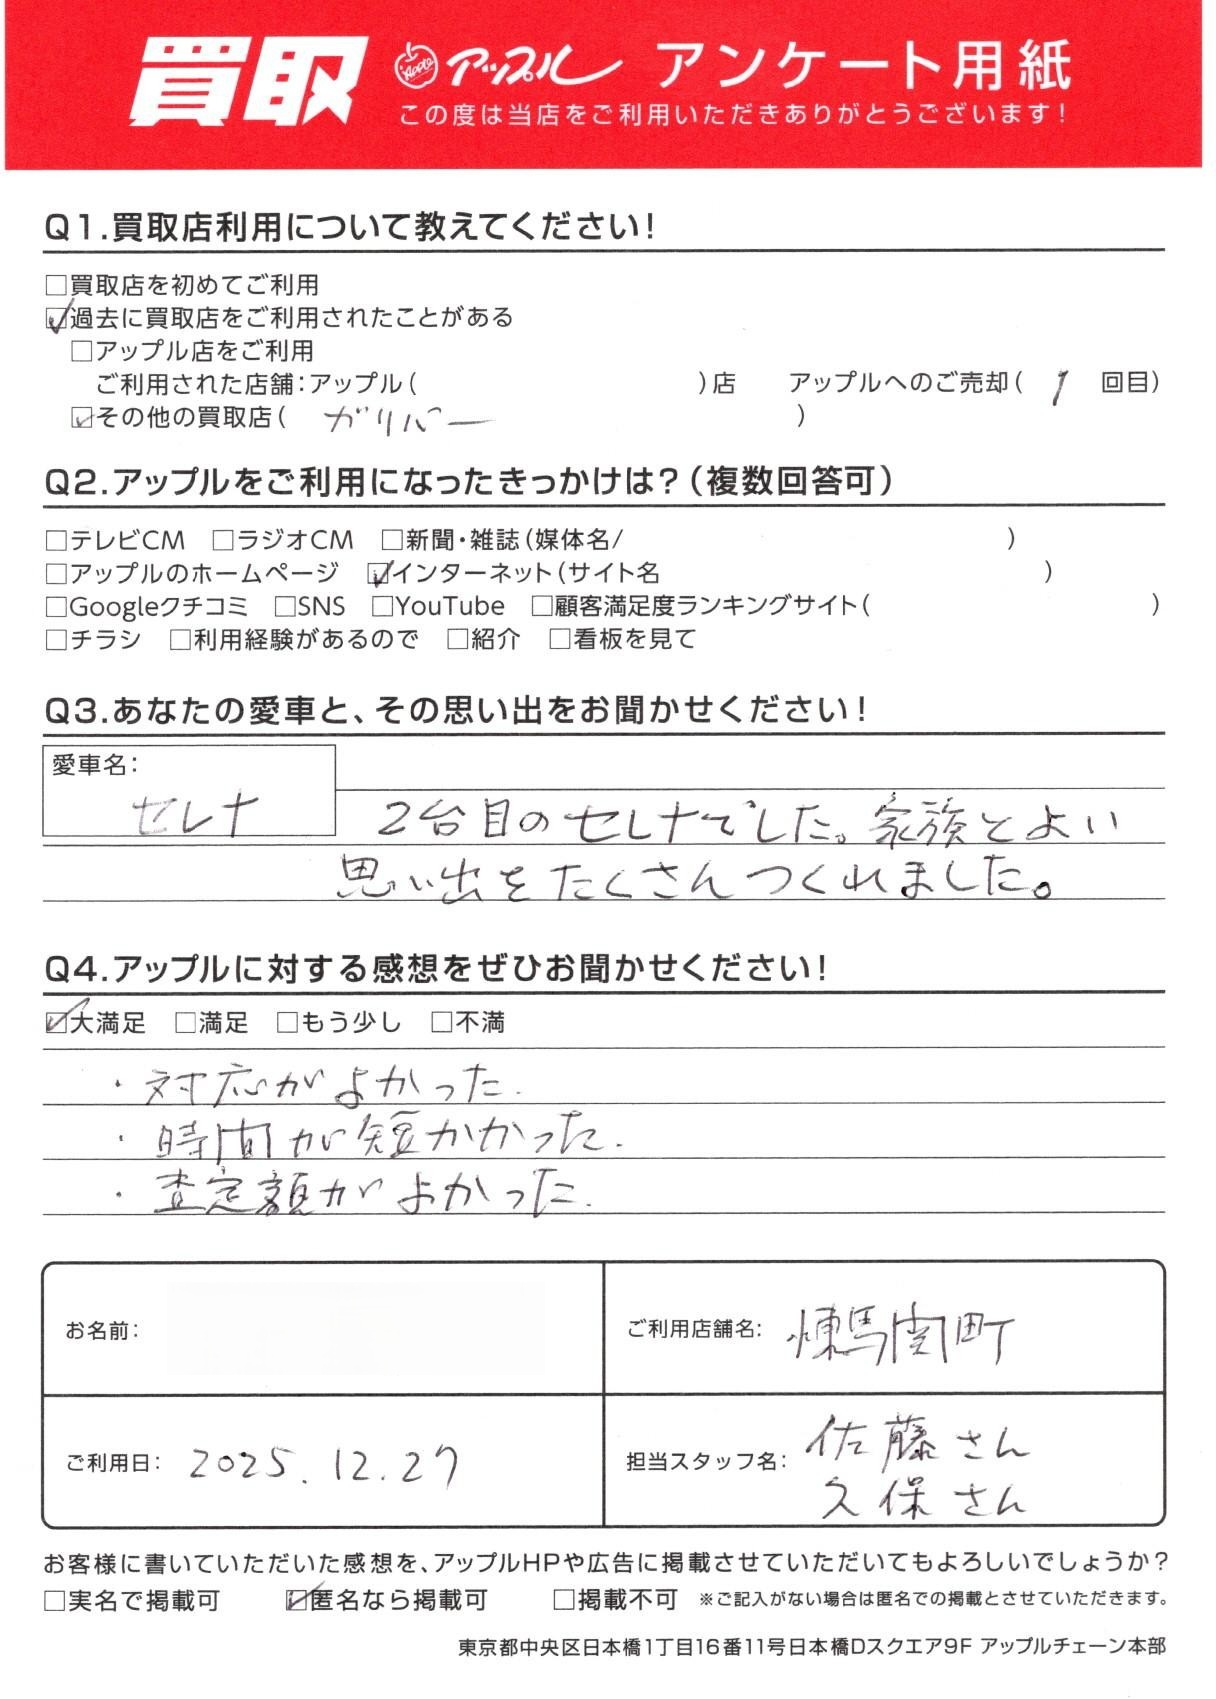 買取 Apple アップル アンケート用紙
この度は当店をご利用いただきありがとうございます!
Q1.買取店利用について教えてください!
□買取店を初めてご利用
☑過去に買取店をご利用されたことがある
□アップル店をご利用
ご利用された店舗:アップル( )店 アップルへのご売却( 1 回目)
☑その他の買取店( ガリバー )
Q2.アップルをご利用になったきっかけは?(複数回答可)
□テレビCM □ラジオCM □新聞・雑誌(媒体名/ )
□アップルのホームページ ☑インターネット(サイト名 )
□Googleクチコミ □SNS □YouTube □顧客満足度ランキングサイト( )
□チラシ □利用経験があるので □紹介 □看板を見て
Q3.あなたの愛車と、その思い出をお聞かせください!
愛車名:
セレナ 2台目のセレナでした。家族とよい
思い出をたくさんつくれました。
Q4.アップルに対する感想をぜひお聞かせください!
☑大満足 □満足 □もう少し □不満
・対応がよかった.
・時間が短かかった.
・査定額がよかった.
お名前: ご利用店舗名: 練馬関町
ご利用日: 2025.12.27 担当スタッフ名: 佐藤さん
久保さん
お客様に書いていただいた感想を、アップルHPや広告に掲載させていただいてもよろしいでしょうか?
□実名で掲載可 ☑匿名なら掲載可 □掲載不可 ※ご記入がない場合は匿名での掲載とさせていただきます。
東京都中央区日本橋1丁目16番11号日本橋Dスクエア9F アップルチェーン本部